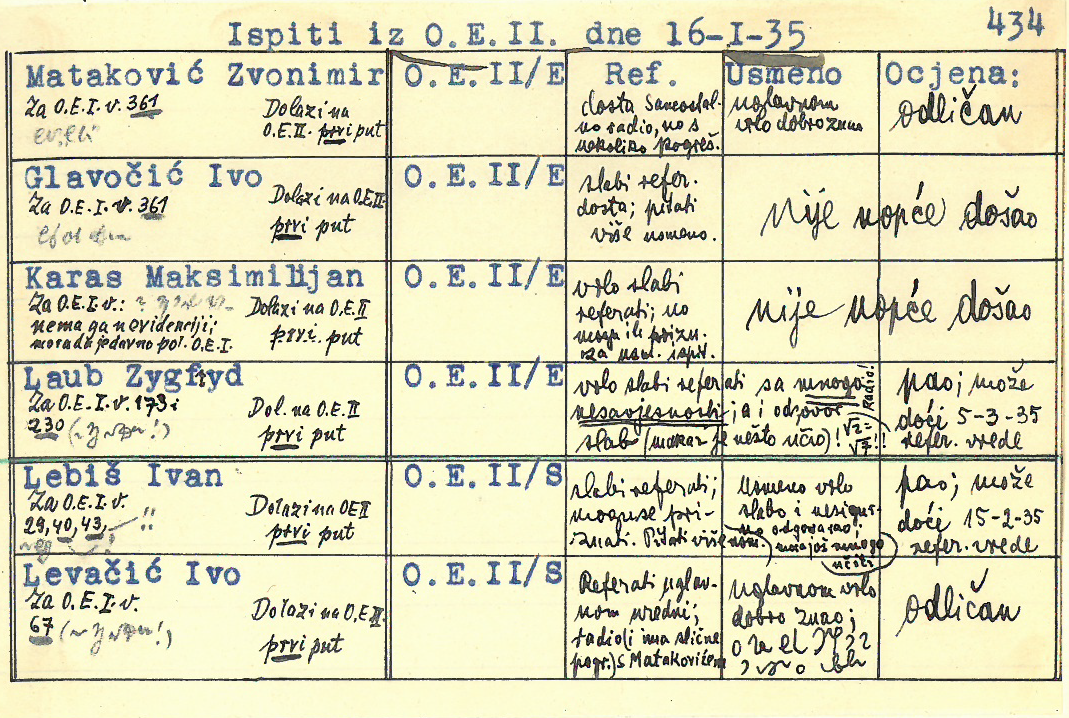 434
Ispiti iz O.E.II. dne 16-I-35
Mataković Zvonimir O.E.II/E Ref. Usmeno Ocjena:
Za O.E.I. v. 361
Dolazi na
O.E.II. prvi put
dosta samostal-
no radio, no s
nekoliko pogreš.
uglavnom
vrlo dobro znao
odličan
Glavočić Ivo O.E.II/E
Za O.E.I. v. 361
Dolazi na O.E.II
prvi put
slabi refer.
dosta; pitati
više usmeno.
nije uopće došao
Karas Maksimilijan O.E.II/E
Za O.E.I. v.:
nema ga u evidenciji;
morada jedavno pol. O.E.I.
Dolazi na O.E.II
prvi put
vrlo slabi
referati; no
mogu ih prizn.
za usm. ispit.
nije uopće došao
Laub Zygfryd O.E.II/E
Za O.E.I. v. 173 i
230
Dol. na O.E.II
prvi put
vrlo slabi referati sa mnogo
nesavjesnosti; a i odgovor
slab (makar je nešto učio)!
Radio!
pao; može
doći 5-3-35
refer. vrede
Lebiš Ivan O.E.II/S
Za O.E.I. v.
29, 40, 43,
Dolazi na OE II
prvi put
slabi referati;
mogu se pri-
znati. Pitati više usm.
Usmeno vrlo
slabo i nesigur-
no odgovarao;
mora još mnogo
učiti
pao; može
doći 15-2-35
refer. vrede
Levačić Ivo O.E.II/S
Za O.E.I. v.
67
Dolazi na O.E.II.
prvi put
Referati uglav-
nom uredni;
radio (i ima slične
pogr.) s Matakovićem
uglavnom vrlo
dobro znao;
odličan